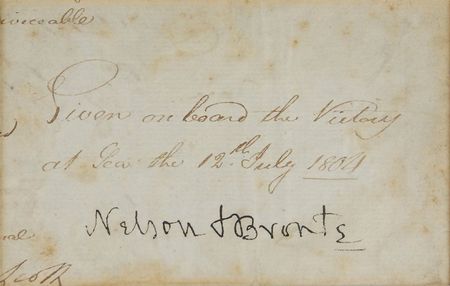 viceable
Given on board the Victory
at Sea the 12th July 1804
Nelson & Bronte
Scott